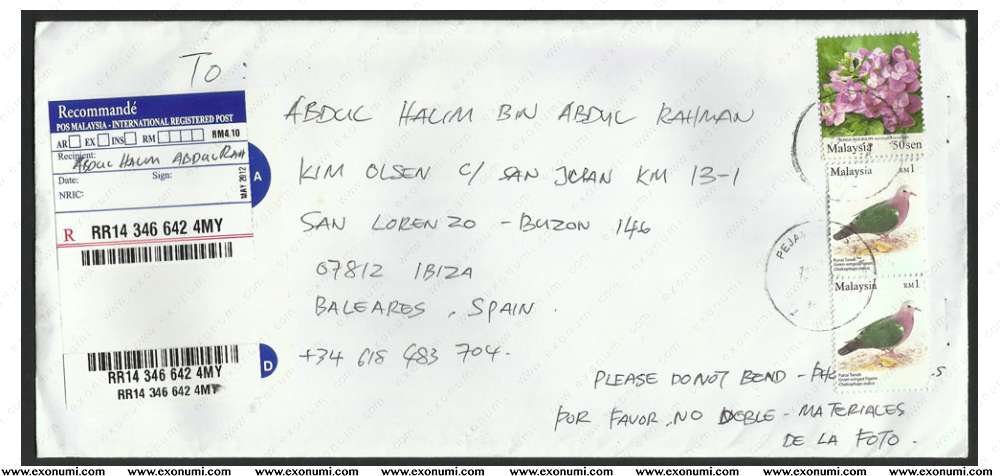 To:
Recommandé
POS MALAYSIA - INTERNATIONAL REGISTERED POST
AR EX INS RM RM4.10
Recipient: ABDUL HALIM ABDUL RAH
Date: Sign:
NRIC:
MAY 2012
A
R RR14 346 642 4MY
RR14 346 642 4MY
RR14 346 642 4MY
D
ABDUL HALIM BIN ABDUL RAHMAN
KIM OLSEN C/ SAN JOHAN KM 13-1
SAN LORENZO - BUZON 146
07812 IBIZA
BALEARES, SPAIN.
+34 618 483 704.
PLEASE DO NOT BEND -
POR FAVOR, NO DOBLE - MATERIALES
DE LA FOTO.
Malaysia 50sen
Malaysia RM1
Punai Tanah
Green-winged Pigeon
Chalcophaps indica
Malaysia RM1
Punai Tanah
Green-winged Pigeon
Chalcophaps indica
PEJA
www.exonumi.com www.exonumi.com www.exonumi.com www.exonumi.com www.exonumi.com www.exonumi.com www.exonumi.com www.exonumi.com